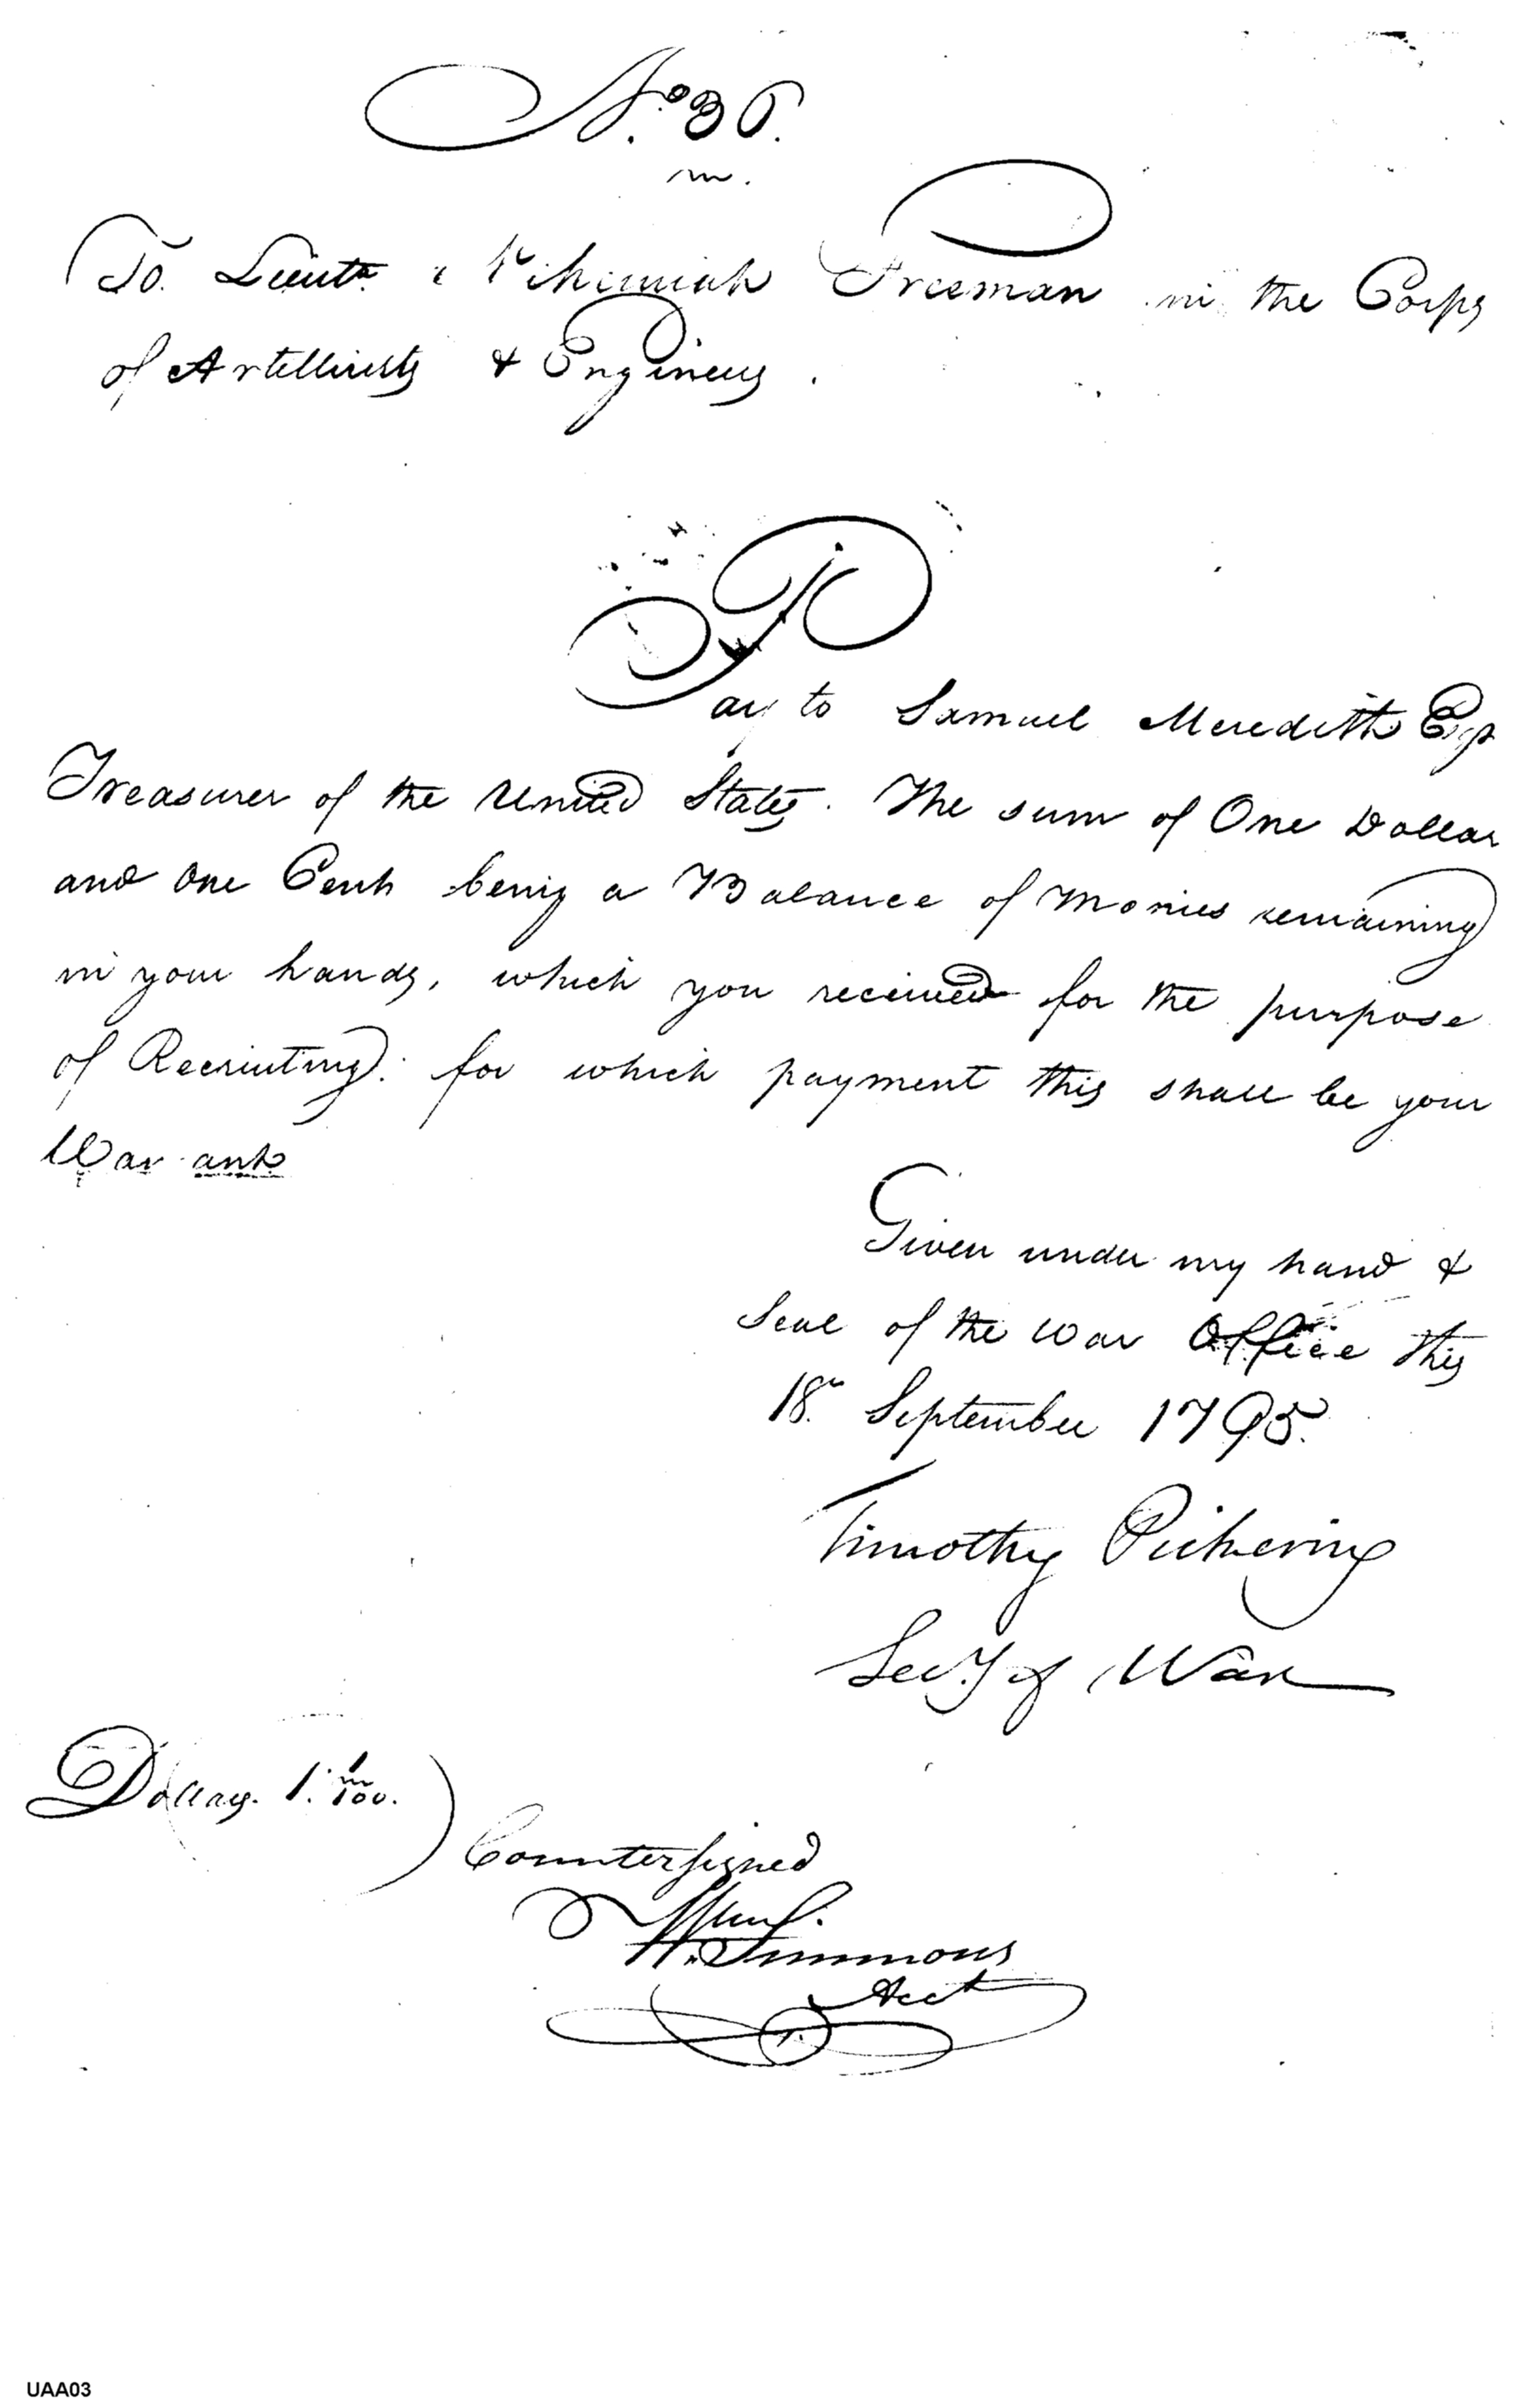 No. 36.
To Lieutt. Nehemiah Freeman in the Corps
of Artillerists & Engineers.
Pay to Samuel Meredith Esqr
Treasurer of the United States. The sum of One Dollar
and One Cent being a Balance of Monies remaining
in your hands, which you received for the purpose
of Recruiting: for which payment this shall be your
Warrant
Given under my hand &
Seal of the War Office this
18th September 1795.
Timothy Pickering
Secy. of War
Dollars. 1. 1/100.
Countersigned
Wm. Simmons
Acct
UAA03